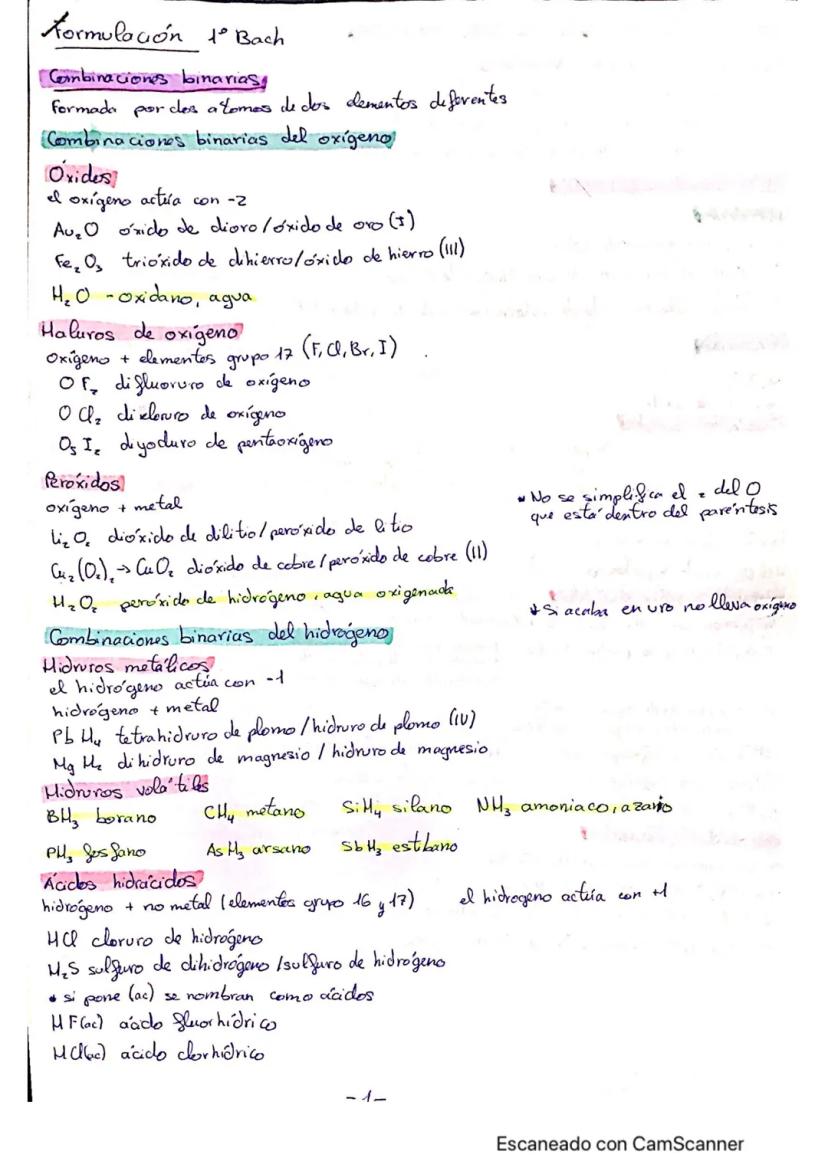 Formulación 1º Bach
Combinaciones binarias
Formada por dos atomos de dos elementos diferentes
Combinaciones binarias del oxígeno
Óxidos
el oxígeno actúa con -2
Au₂O óxido de dioro/óxido de oro (I)
Fe₂O₃ trióxido de dihierro/óxido de hierro (III)
H₂O - oxidano, agua
Haluros de oxígeno
Oxígeno + elementos grupo 17 (F, Cl, Br, I)
OF₂ difluoruro de oxígeno
OCl₂ dicloruro de oxígeno
O₅I₂ diyoduro de pentaoxígeno
Peróxidos
oxígeno + metal
* No se simplifica el ₂ del O
que está dentro del paréntesis
Li₂O₂ dióxido de dilitio/peróxido de litio
Cu₂(O₂)₂ → CuO₂ dióxido de cobre/peróxido de cobre (II)
H₂O₂ peróxido de hidrógeno, agua oxigenada
* Si acaba en uro no lleva oxígeno
Combinaciones binarias del hidrógeno
Hidruros metálicos
el hidrógeno actúa con -1
hidrógeno + metal
PbH₄ tetrahidruro de plomo/hidruro de plomo (IV)
MgH₂ dihidruro de magnesio / hidruro de magnesio
Hidruros volátiles
BH₃ borano CH₄ metano SiH₄ silano NH₃ amoniaco, azano
PH₃ fosfano AsH₃ arsano SbH₃ estibano
Ácidos hidrácidos
hidrógeno + no metal (elementos grupo 16 y 17) el hidrogeno actúa con +1
HCl cloruro de hidrógeno
H₂S sulfuro de dihidrógeno /sulfuro de hidrógeno
* si pone (ac) se nombran como ácidos
HF(ac) ácido fluorhídrico
HCl(ac) ácido clorhídrico
-1-
Escaneado con CamScanner